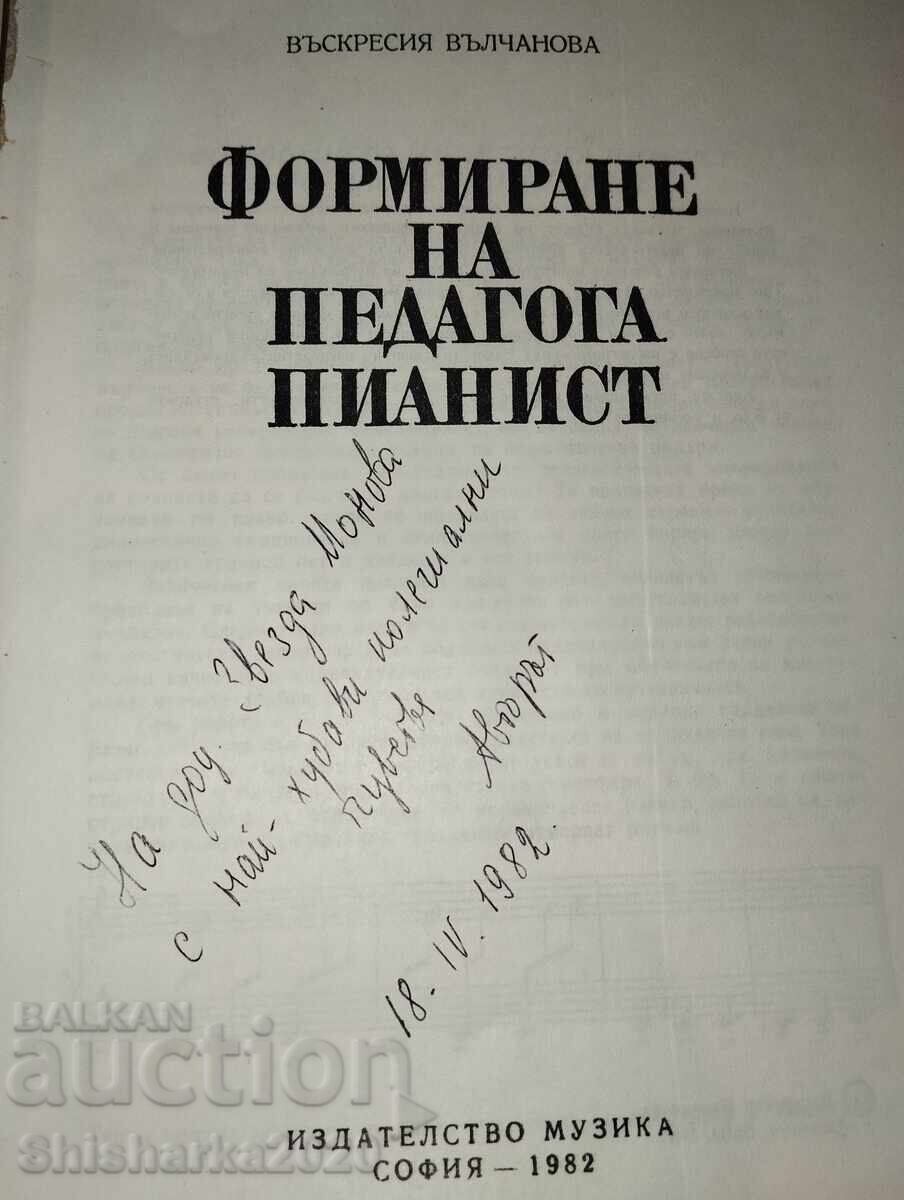 ВЪСКРЕСИЯ ВЪЛЧАНОВА
ФОРМИРАНЕ
НА
ПЕДАГОГА
ПИАНИСТ
На доц. Звезда Йонова
с най-хубави колегиални
чувства
Авторът
18. IV. 1982.
ИЗДАТЕЛСТВО МУЗИКА
СОФИЯ — 1982
BALKAN
auction
Shisharka2020